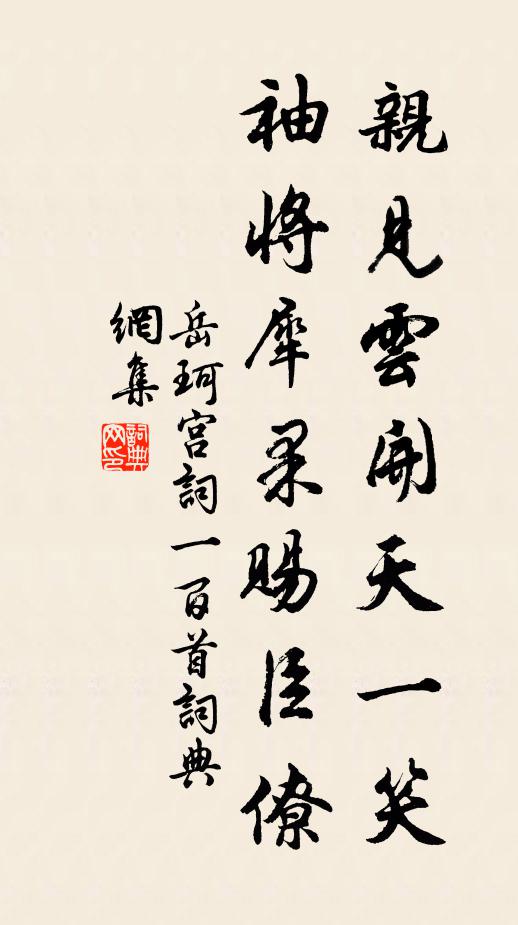 親見雲開天一笑
袖將犀果賜臣僚
岳珂宮詞一百首詞典
網集
詞典網印